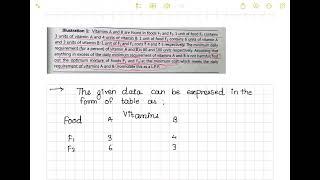 Illustration 1: Vitamins A and B are found in foods F₁ and F₂. 1 unit of food F₁ contains
3 units of vitamin A and 4 units of vitamin B. 1 unit of F₂ contains 6 units of vitamin A
and 3 units of vitamin B. 1 unit of F₁ and F₂ costs ₹ 4 and ₹ 5 respectively. The minimum daily
requirement (for a person) of vitamin A and B is 80 and 100 units respectively. Assuming that
anything in excess of the daily minimum requirement of vitamins A and B is not harmful, find
out the optimum mixture of foods F₁ and F₂ at the minimum cost which meets the daily
requirement of vitamins A and B. Formulate this as a L.P.P.
→ The given data can be expressed in the
form of table as ;
Food A Vitamins B
F₁ 3 4
F₂ 6 3